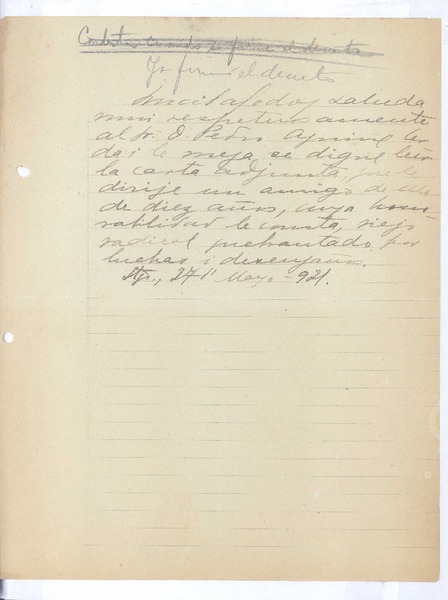 Contestar cuando se firme el decreto
Se firmó el decreto
Lucila Godoy saluda
muy respetuosamente
al Sr. D. Pedro Aguirre Cer-
da i le ruega se digne leer
la carta adjunta, que le
dirije un amigo de ella
de diez años, cuya hono-
rablidad le consta, viejo
radical quebrantado por
luchas i desengaños.
Stgo., 27 Mayo - 921.